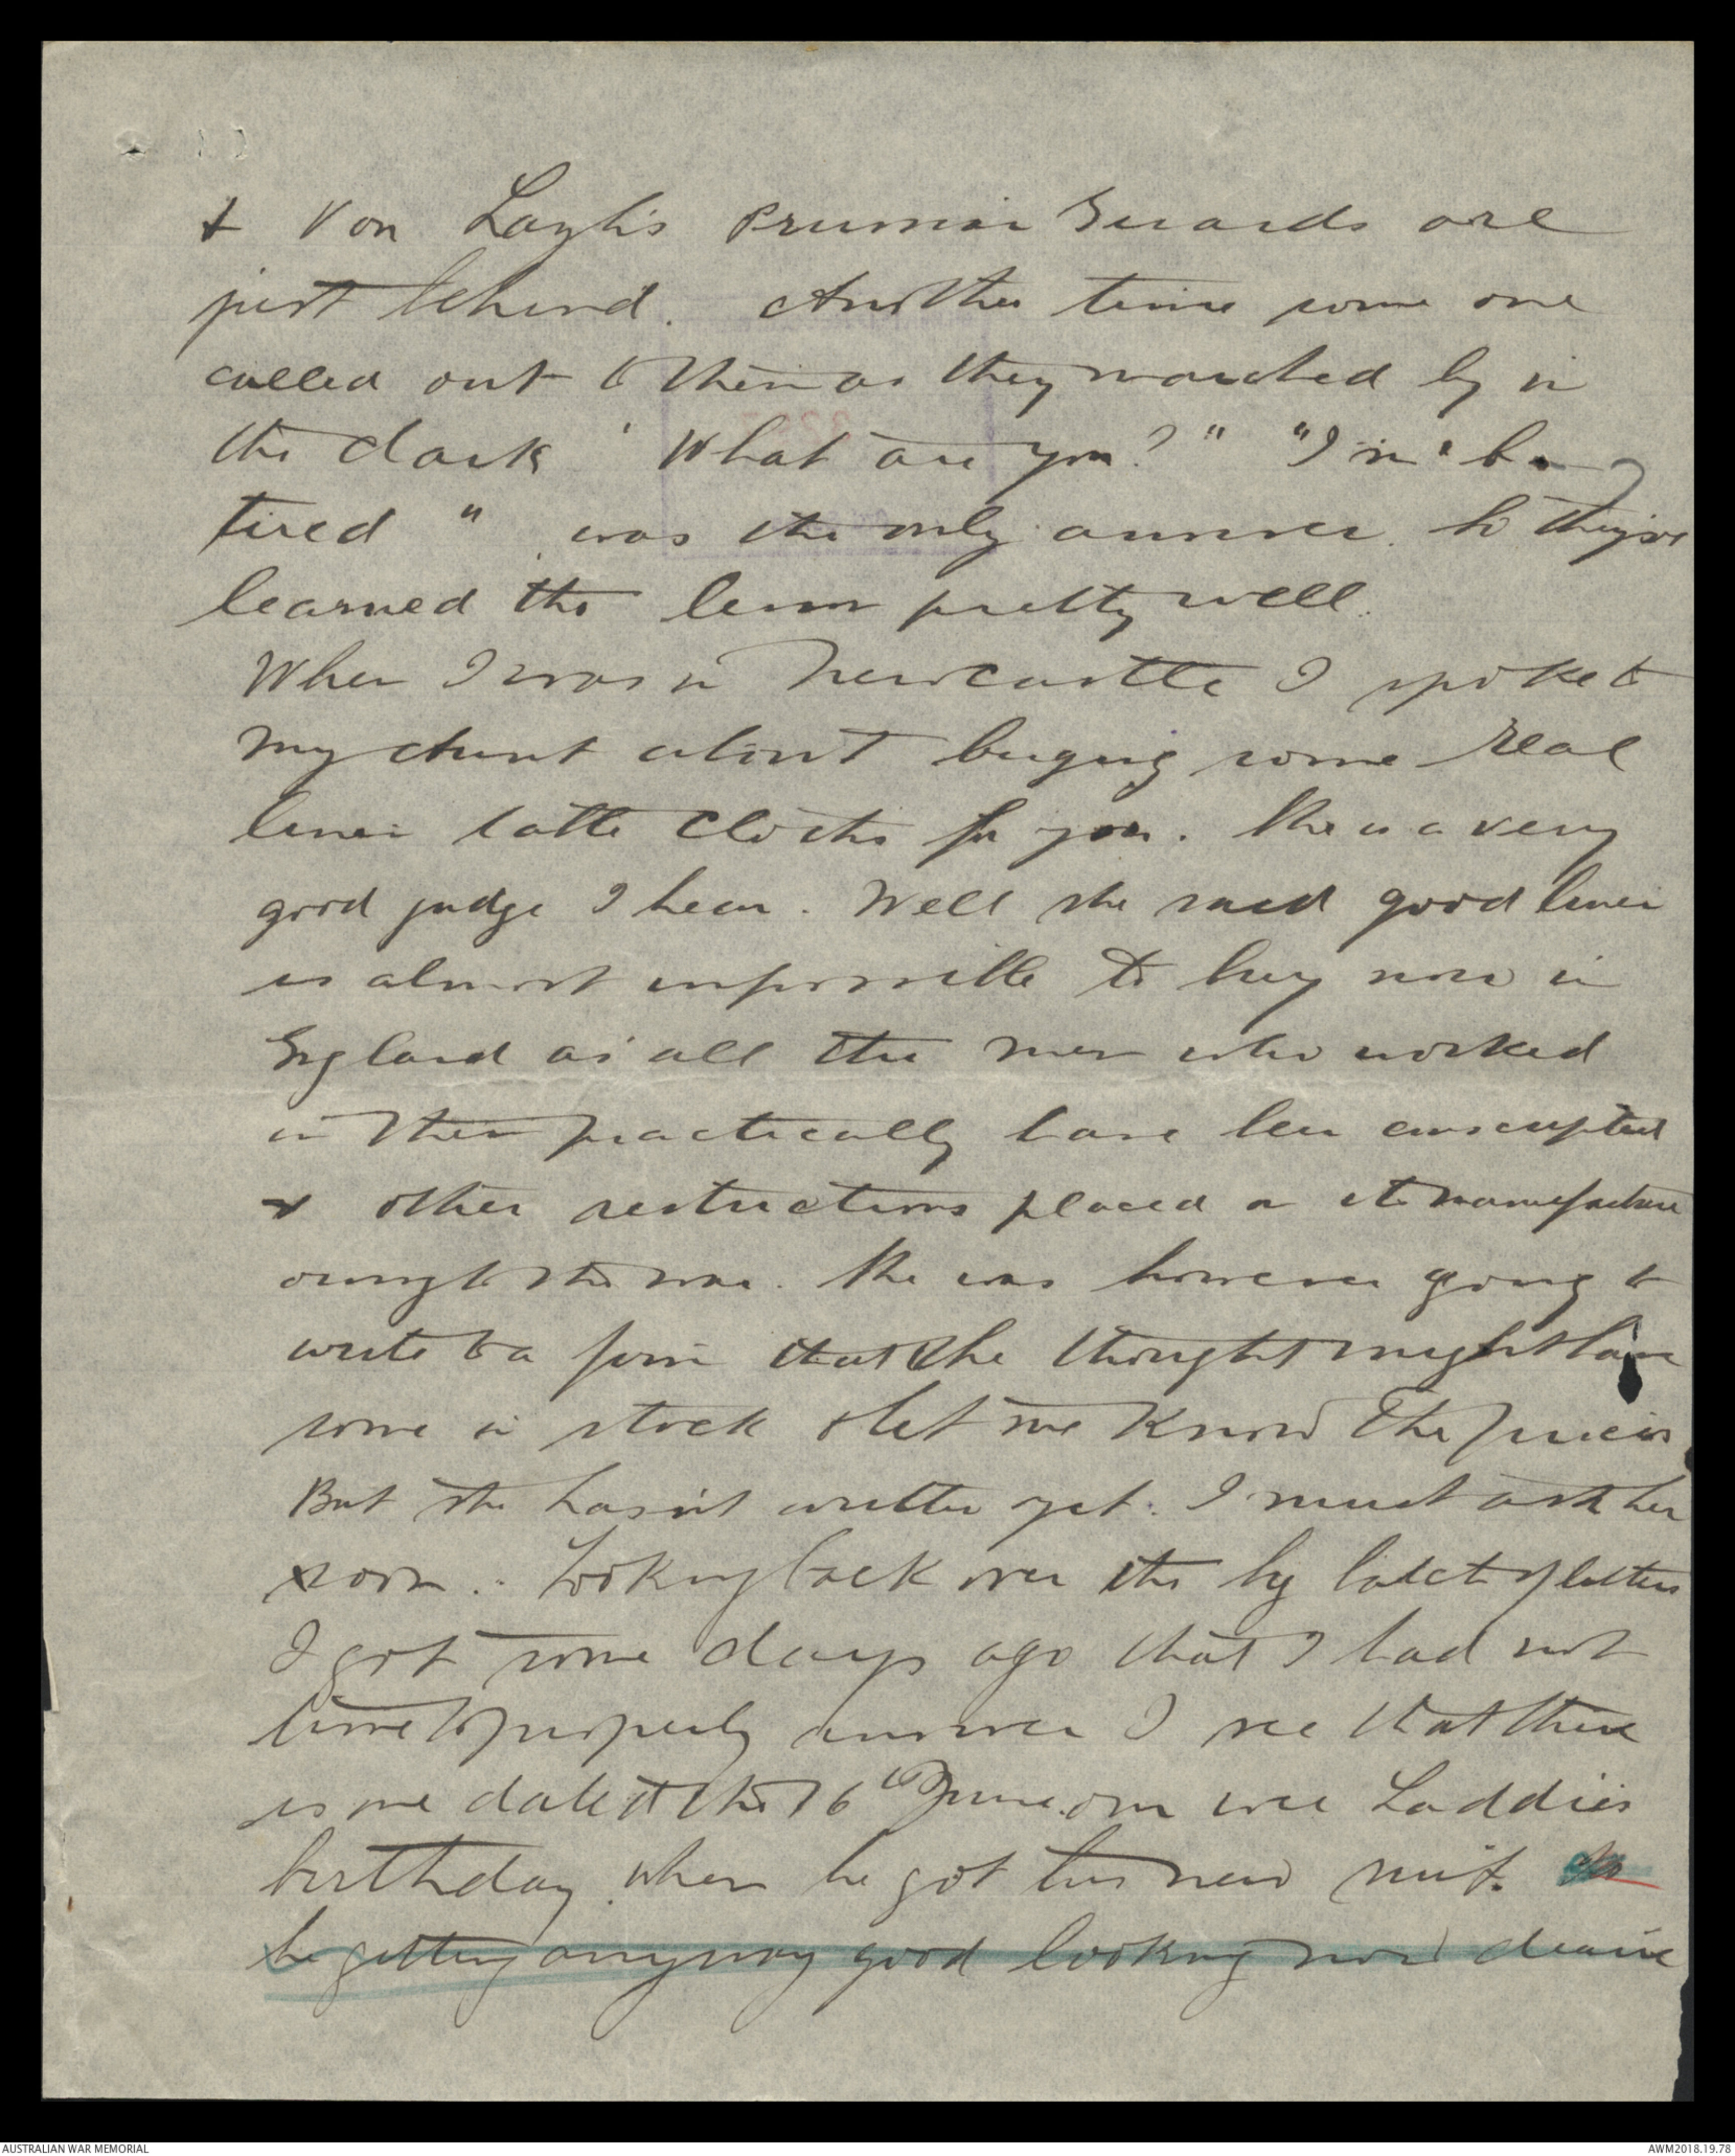 & Von Prussian Guards are
just behind. Another time some one
called out to them as they marched by in
the dark ' What are you? " "I'm b
tired " was the only answer. So they've
learned the lesson pretty well.
When I was in Newcastle I spoke to
my Aunt about buying some real
linen table cloths for you. She is a very
good judge I hear. Well she said good linen
is almost impossible to buy now in
England as all the men who worked
in them practically have been conscripted
& other restrictions placed on its manufacture
owing to the war. She was however going to
write to a firm that she thought might have
some in stock & let me know the prices
But she hasn't written yet. I must ask her
soon. Looking back over the big batch of letters
I got some days ago that I had not
time to properly answer I see that there
is one dated the 16th June our wee Laddies
birthday when he got his new suit. Is
he getting anyway good looking now dearie
AUSTRALIAN WAR MEMORIAL
AWM2018.19.78